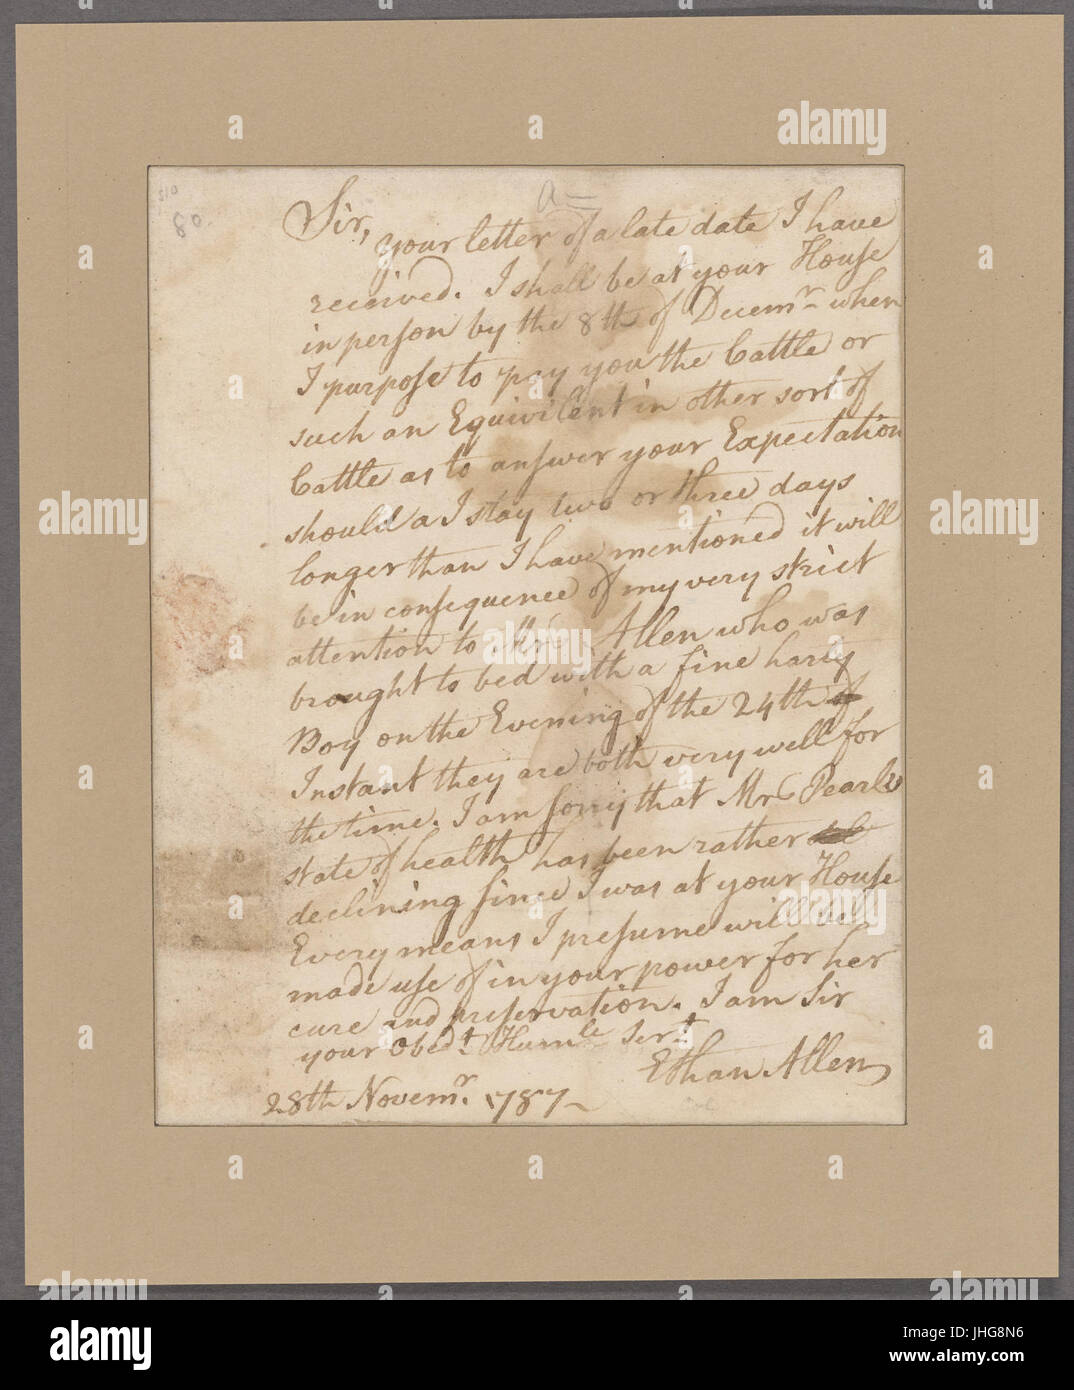 510
80
a
Sir,
your letter of a late date I have
received. I shall be at your House
in person by the 8th of Decemr when
I purpose to pay you the Cattle or
such an Equivilent in other sort of
Cattle as to answer your Expectation
should a I stay two or three days
longer than I have mentioned it will
be in consequence of my very strict
attention to Mrs Allen who was
brought to bed with a fine harty
Boy on the Evening of the 24th of
Instant they are both very well for
the time. I am sorry that Mrs Pearls
state of health has been rather
declining since I was at your House
Every means I presume will be
made use of in your power for her
cure and preservation. I am Sir
your Obedt Humle Sert
Ethan Allen
28th Novemr. 1787
alamy
a
alamy
Image ID: JHG8N6
www.alamy.com